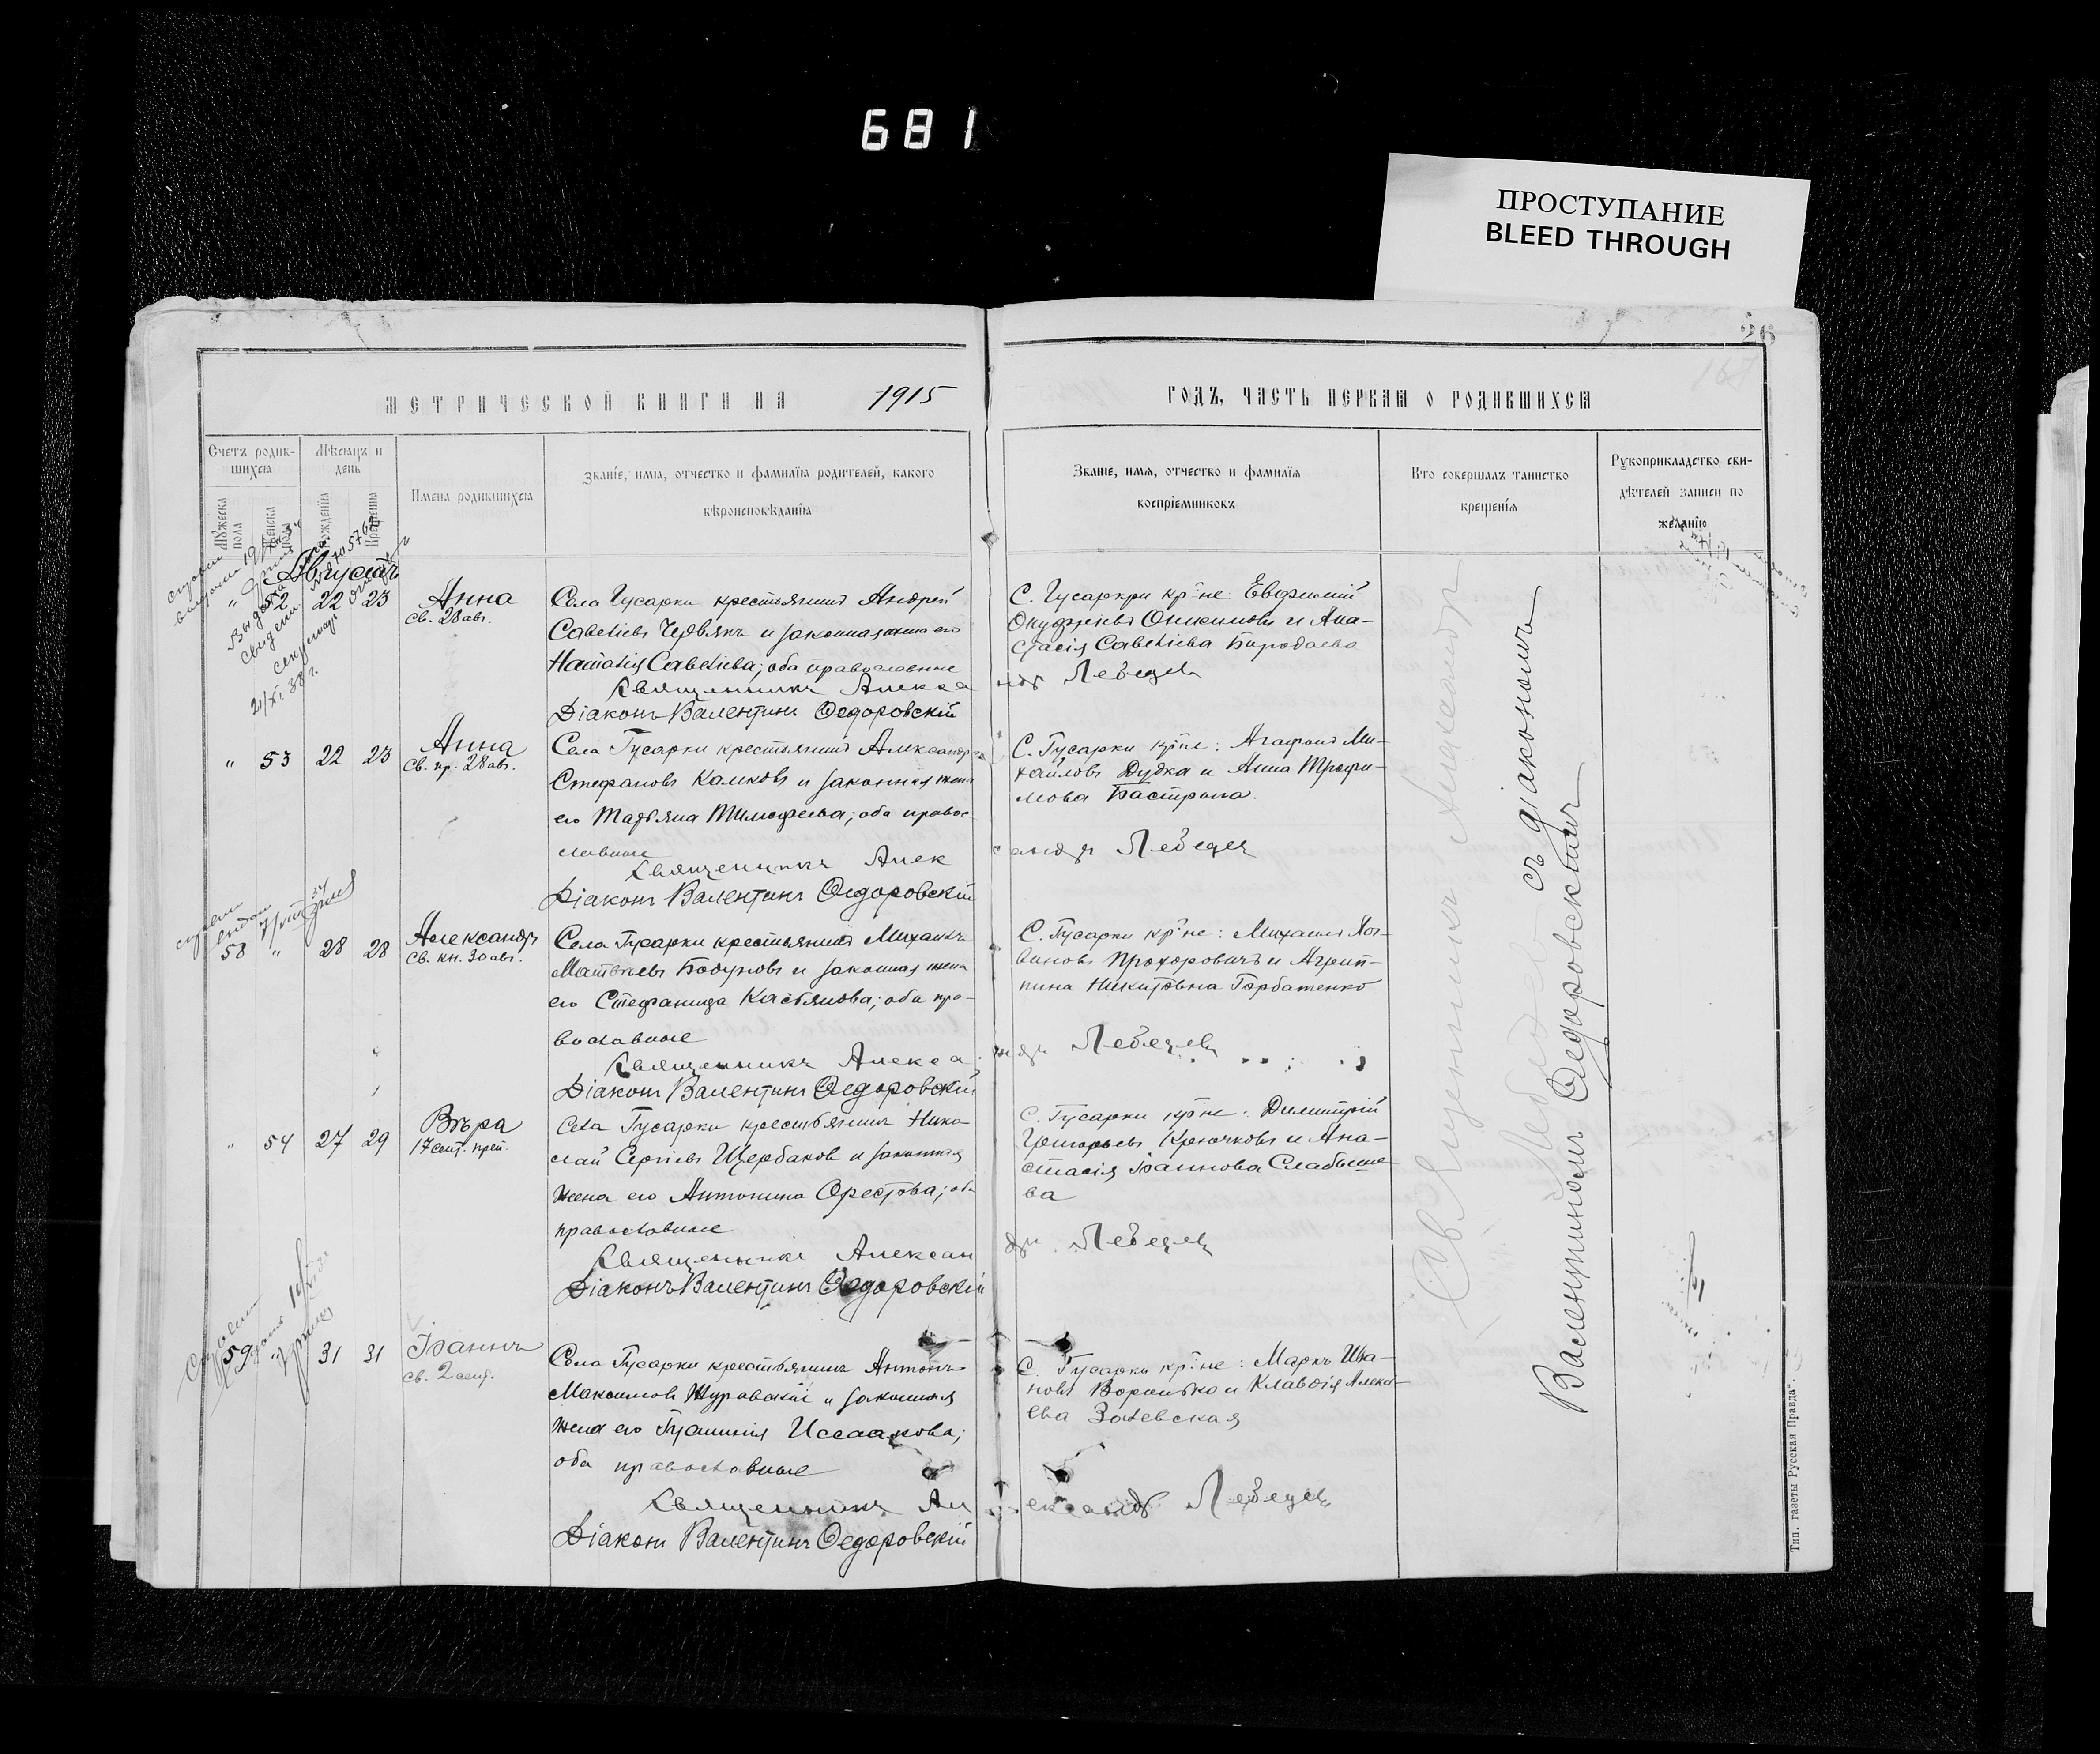 681
ПРОСТУПАНИЕ
BLEED THROUGH
26
МЕТРИЧЕСКОЙ КНИГИ НА 1915
ГОДЪ, ЧАСТЬ ПЕРВАЯ О РОДИВШИХСЯ
Счетъ родив-
шихся
Мѣсяцъ и
день
Имена родившихся
Званіе, имя, отчество и фамилія родителей, какого
вѣроисповѣданія
Званіе, имя, отчество и фамилія
воспріемниковъ
Кто совершалъ таинство
крещенія
Рукоприкладство сви-
дѣтелей записи по
желанію
Мужеска пола
Женска
Рожденія
Крещенія
Августъ
52 22 23
Анна
св. 28 авг.
Села Гусарки крестьянинъ Андрей
Савеліевъ Червякъ и законная жена его
Наталія Савеліева; оба православные
Священникъ Алекса
Діаконъ Валентинъ Ѳедоровскій
С. Гусарки кр-не: Евфимій
Онуфріевъ и Ана-
стасія Савеліева
ндръ Лебедев
21/XI 38 г.
" 53 22 23
Анна
св. пр. 28 авг.
Села Гусарки крестьянинъ Александръ
Стефановъ Калиновъ и законная жена
его Татьяна Тимофеева; оба правос
лавные
Священникъ Алек
Діаконъ Валентинъ Ѳедоровскій
С. Гусарки кр-не: Агафонъ Ми-
хайловъ Дудка и Анна Трофи-
мова
сандръ Лебедев
58 " 28 28
Александръ
св. кн. 30 авг.
Села Гусарки крестьянинъ Михаилъ
Матвѣевъ и законная жена
его Стефанида Касьянова; оба пра-
вославные
Священникъ Алекса
Діаконъ Валентинъ Ѳедоровскій
С. Гусарки кр-не: Михаилъ
Прохоровичъ и Агрип-
пина Никитовна Горбатенко
ндръ Лебедев
" 54 27 29
Вѣра
17 сент.
Села Гусарки крестьянинъ Нико-
лай Сергіевъ Щербаковъ и законная
жена его Антонина Орестова; оба
православные
Священникъ Алексан
Діаконъ Валентинъ Ѳедоровскій
С. Гусарки кр-не: Димитрій
Григорьевъ Крючковъ и Ана-
стасія Іоаннова Слабыше
ва
дръ Лебедев
59 " 31 31
Іоаннъ
св. 2 сент.
Села Гусарки крестьянинъ Антонъ
Максимовъ Журавскій и законная
жена его Исаакова;
оба православные
Священникъ Ал
Діаконъ Валентинъ Ѳедоровскій
С. Гусарки кр-не: Маркъ Ива-
новъ Воронько и Клавдія Алексѣ-
ева
ександръ Лебедев
Священникъ Александръ
Лебедев съ діакономъ
Валентиномъ Ѳедоровскимъ
Тип. газеты „Русская Правда“.